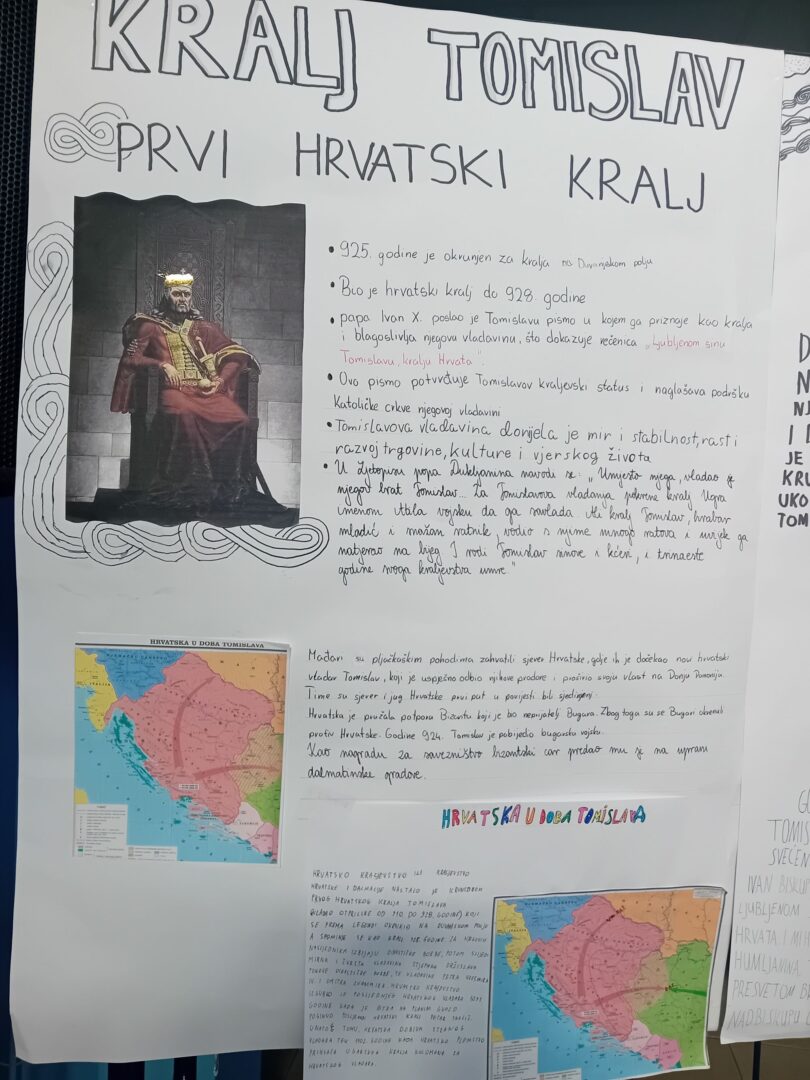 KRALJ TOMISLAV
PRVI HRVATSKI KRALJ
• 925. godine je okrunjen za kralja na Duvanjskom polju
• Bio je hrvatski kralj do 928. godine
• papa Ivan X. poslao je Tomislavu pismo u kojem ga priznaje kao kralja
i blagoslivlja njegovu vladavinu, što dokazuje rečenica „Ljubljenom sinu
Tomislavu, kralju Hrvata"
• Ovo pismo potvrđuje Tomislavov kraljevski status i naglašava podršku
Katoličke crkve njegovoj vladavini
• Tomislavova vladavina donijela je mir i stabilnost, rast i
razvoj trgovine, kulture i vjerskog života
• U Ljetopisu popa Dukljanina navodi se: „Umjesto njega, vladao je
njegov brat Tomislav... Za Tomislavova vladanja pokrene kralj Ugra
imenom Atila vojsku da ga savlada. Ali kralj Tomislav, hrabar
mladić i snažan ratnik, vodio s njime mnogo ratova i uvijek ga
natjerao na bijeg. I rodi Tomislav sinove i kćeri, i trinaeste
godine svoga kraljevstva umre"
HRVATSKA U DOBA TOMISLAVA
Mađari su pljačkaškim pohodima zahvatili sjever Hrvatske, gdje ih je dočekao novi hrvatski
vladar Tomislav, koji je uspješno odbio njihove prodore i proširio svoju vlast na Donju Panoniju.
Time su sjever i jug Hrvatske prvi put u povijesti bili sjedinjeni.
Hrvatska je pružala potporu Bizantu koji je bio neprijatelj Bugara. Zbog toga su se Bugari okrenuli
protiv Hrvatske. Godine 924. Tomislav je pobijedio bugarsku vojsku.
Kao nagradu za savezništvo bizantski car predao mu je na upravu
dalmatinske gradove.
HRVATSKA U DOBA TOMISLAVA
HRVATSKO KRALJEVSTVO ILI KRALJEVSTVO
HRVATSKE I DALMACIJE NASTALO JE KRUNIDBOM
PRVOG HRVATSKOG KRALJA TOMISLAVA
(VLADAO OTPRILIKE OD 910. DO 928. GODINE) KOJI
SE PREMA LEGENDI OKRUNIO NA DUVANJSKOM POLJU
A SPOMINJE SE KAO KRALJ 925. GODINE. ZA NJEGOVIH
NASLJEDNIKA IZBIJAJU DINASTIČKE BORBE, POTOM SLIJEDI
MIRNA I ČVRSTA VLADAVINA STJEPANA DRŽISLAVA
PONOVNE DINASTIČKE BORBE, TE VLADAVINE PETRA KREŠIMIRA
IV. I DMITRA ZVONIMIRA. HRVATSKO KRALJEVSTVO
IZGUBILO JE POSLJEDNJEG HRVATSKOG VLADARA 1097.
GODINE KADA JE BITKA NA PLANINI GVOZD
POGINUO POSLJEDNJI HRVATSKI KRALJ PETAR
UNATOČ TOMU, HRVATSKA DOBIVA STRANOG
VLADARA TEK 1102. GODINE KADA HRVATSKO PLEMSTVO
PRIHVAĆA UGARSKOG KRALJA KOLOMANA ZA
HRVATSKOG VLADARA.
D
N
NJ
I
JE
KRU
UKO
TOM
TOMIS
SVEĆEN
IVAN BISKUP
LJUBLJENOM
HRVATA I MIH
HUMLJANINA
PRESVETOM
NADBISKUPU